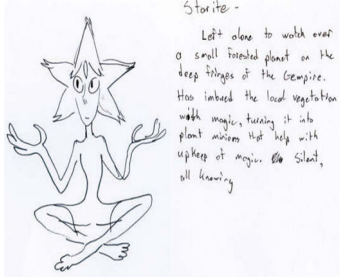 Starite -
Left alone to watch over
a small forested planet on the
deep fringes of the Gempire.
Has imbued the local vegetation
with magic, turning it into
plant minions that help with
upkeep of magic. Silent,
all knowing